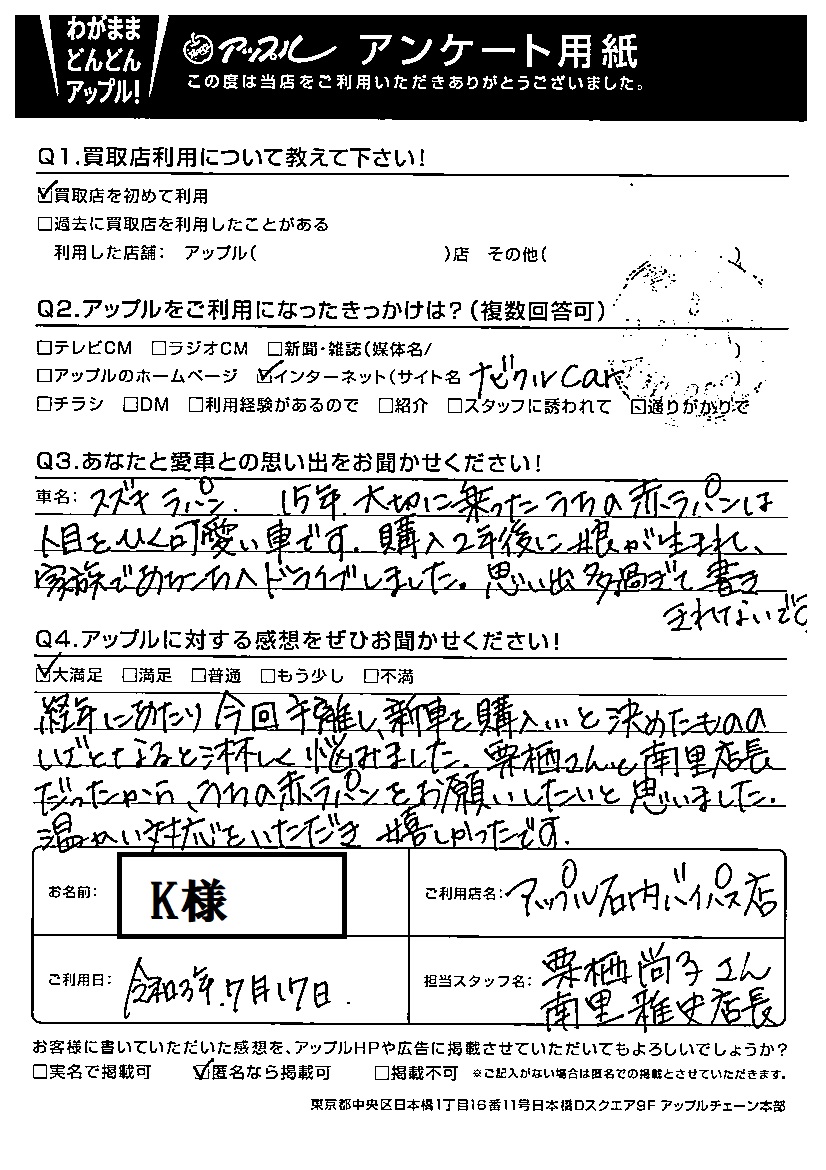 わがまま
どんどん
アップル!
アップル アンケート用紙
この度は当店をご利用いただきありがとうございました。
Q1.買取店利用について教えて下さい!
☑買取店を初めて利用
□過去に買取店を利用したことがある
利用した店舗: アップル( )店 その他( )
Q2.アップルをご利用になったきっかけは?(複数回答可)
□テレビCM □ラジオCM □新聞・雑誌(媒体名/ )
□アップルのホームページ ☑インターネット(サイト名 ナビクルCar
□チラシ □DM □利用経験があるので □紹介 □スタッフに誘われて □通りがかりで
Q3.あなたと愛車との思い出をお聞かせください!
車名: スズキ ラパン. 15年 大切に乗ったうちの赤ラパンは
人目をひく可愛い車です. 購入2年後に娘が生まれ、
家族であちこちへドライブしました。思い出多過ぎて書き
きれてないです
Q4.アップルに対する感想をぜひお聞かせください!
☑大満足 □満足 □普通 □もう少し □不満
経年にあたり 今回手離し、新車を購入…と決めたものの
いざとなると淋しく悩みました. 栗栖さんと南里店長
だったから、うちの赤ラパンをお願いしたいと思いました.
温かい対応をいただき 嬉しかったです.
お名前: K様
ご利用店名: アップル石内バイパス店
ご利用日: 令和3年.7月17日.
担当スタッフ名: 栗栖尚子さん
南里雅史店長
お客様に書いていただいた感想を、アップルHPや広告に掲載させていただいてもよろしいでしょうか?
□実名で掲載可 ☑匿名なら掲載可 □掲載不可 ※ご記入がない場合は匿名での掲載とさせていただきます。
東京都中央区日本橋1丁目16番11号日本橋Dスクエア9F アップルチェーン本部